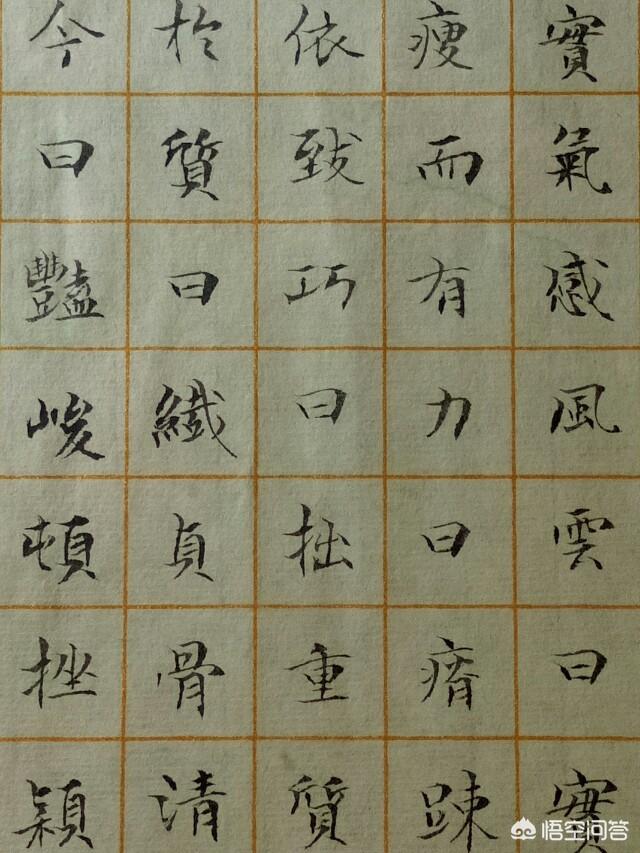 實氣感風雲曰實
瘦而有力曰瘠踈
依致巧曰拙重質
於質曰纖貞骨清
今曰豔峻頓挫穎
悟空问答